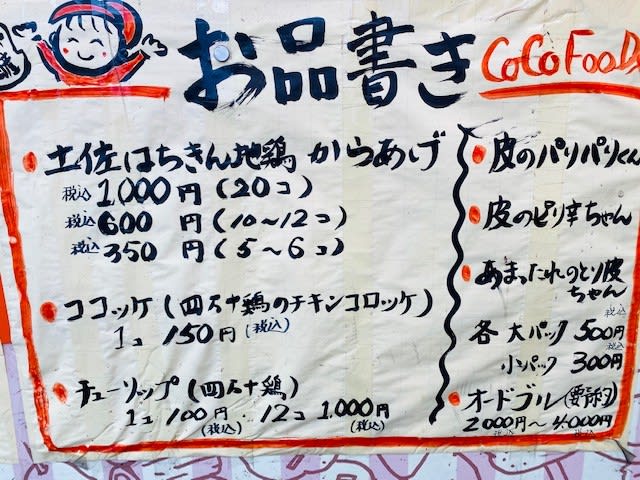 お品書き
CoCo Foods
土佐はちきん地鶏 からあげ
税込 1,000円 (20コ)
税込 600円 (10〜12コ)
税込 350円 (5〜6コ)
ココッケ (四万十鶏のチキンコロッケ)
1コ 150円 (税込)
チューリップ (四万十鶏)
1コ 100円 (税込) 12コ 1,000円 (税込)
皮のパリパリくん
皮のピリ辛ちゃん
あまったれのとり皮
ちゃん
各 大パック 500円 税込
小パック 300円 税込
オードブル (要予約)
2000円〜4000円
(税込) (税込)